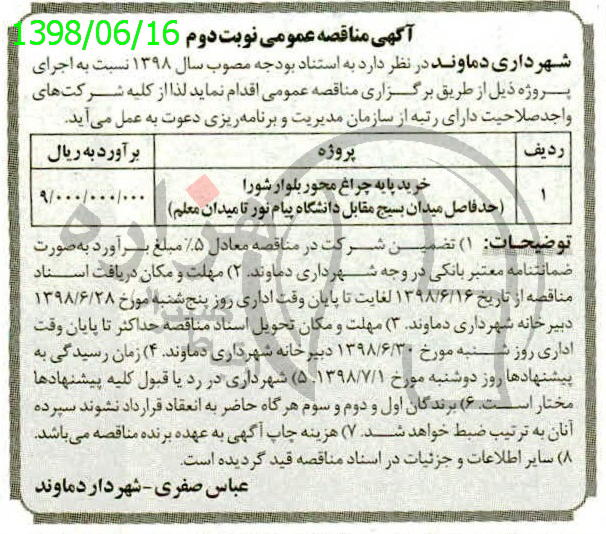 1398/06/16
آگهی مناقصه عمومی نوبت دوم
شهرداری دماوند در نظر دارد به استناد بودجه مصوب سال ۱۳۹۸ نسبت به اجرای
پروژه ذیل از طریق برگزاری مناقصه عمومی اقدام نماید لذا از کلیه شرکت‌های
واجدصلاحیت دارای رتبه از سازمان مدیریت و برنامه‌ریزی دعوت به عمل می‌آید.
ردیف پروژه برآورد به ریال
۱ خرید پایه چراغ محور بلوار شورا ۹/۰۰۰/۰۰۰/۰۰۰
(حدفاصل میدان بسیج مقابل دانشگاه پیام نور تا میدان معلم)
توضیحات: ۱) تضمین شرکت در مناقصه معادل ۵٪ مبلغ برآورد به‌صورت
ضمانتنامه معتبر بانکی در وجه شهرداری دماوند. ۲) مهلت و مکان دریافت اسناد
مناقصه از تاریخ ۱۳۹۸/۶/۱۶ لغایت تا پایان وقت اداری روز پنج‌شنبه مورخ ۱۳۹۸/۶/۲۸
دبیرخانه شهرداری دماوند. ۳) مهلت و مکان تحویل اسناد مناقصه حداکثر تا پایان وقت
اداری روز شنبه مورخ ۱۳۹۸/۶/۳۰ دبیرخانه شهرداری دماوند. ۴) زمان رسیدگی به
پیشنهادها روز دوشنبه مورخ ۱۳۹۸/۷/۱. ۵) شهرداری در رد یا قبول کلیه پیشنهادها
مختار است. ۶) برندگان اول و دوم و سوم هرگاه حاضر به انعقاد قرارداد نشوند سپرده
آنان به ترتیب ضبط خواهد شد. ۷) هزینه چاپ آگهی به عهده برنده مناقصه می‌باشد.
۸) سایر اطلاعات و جزئیات در اسناد مناقصه قید گردیده است.
عباس صفری - شهردار دماوند